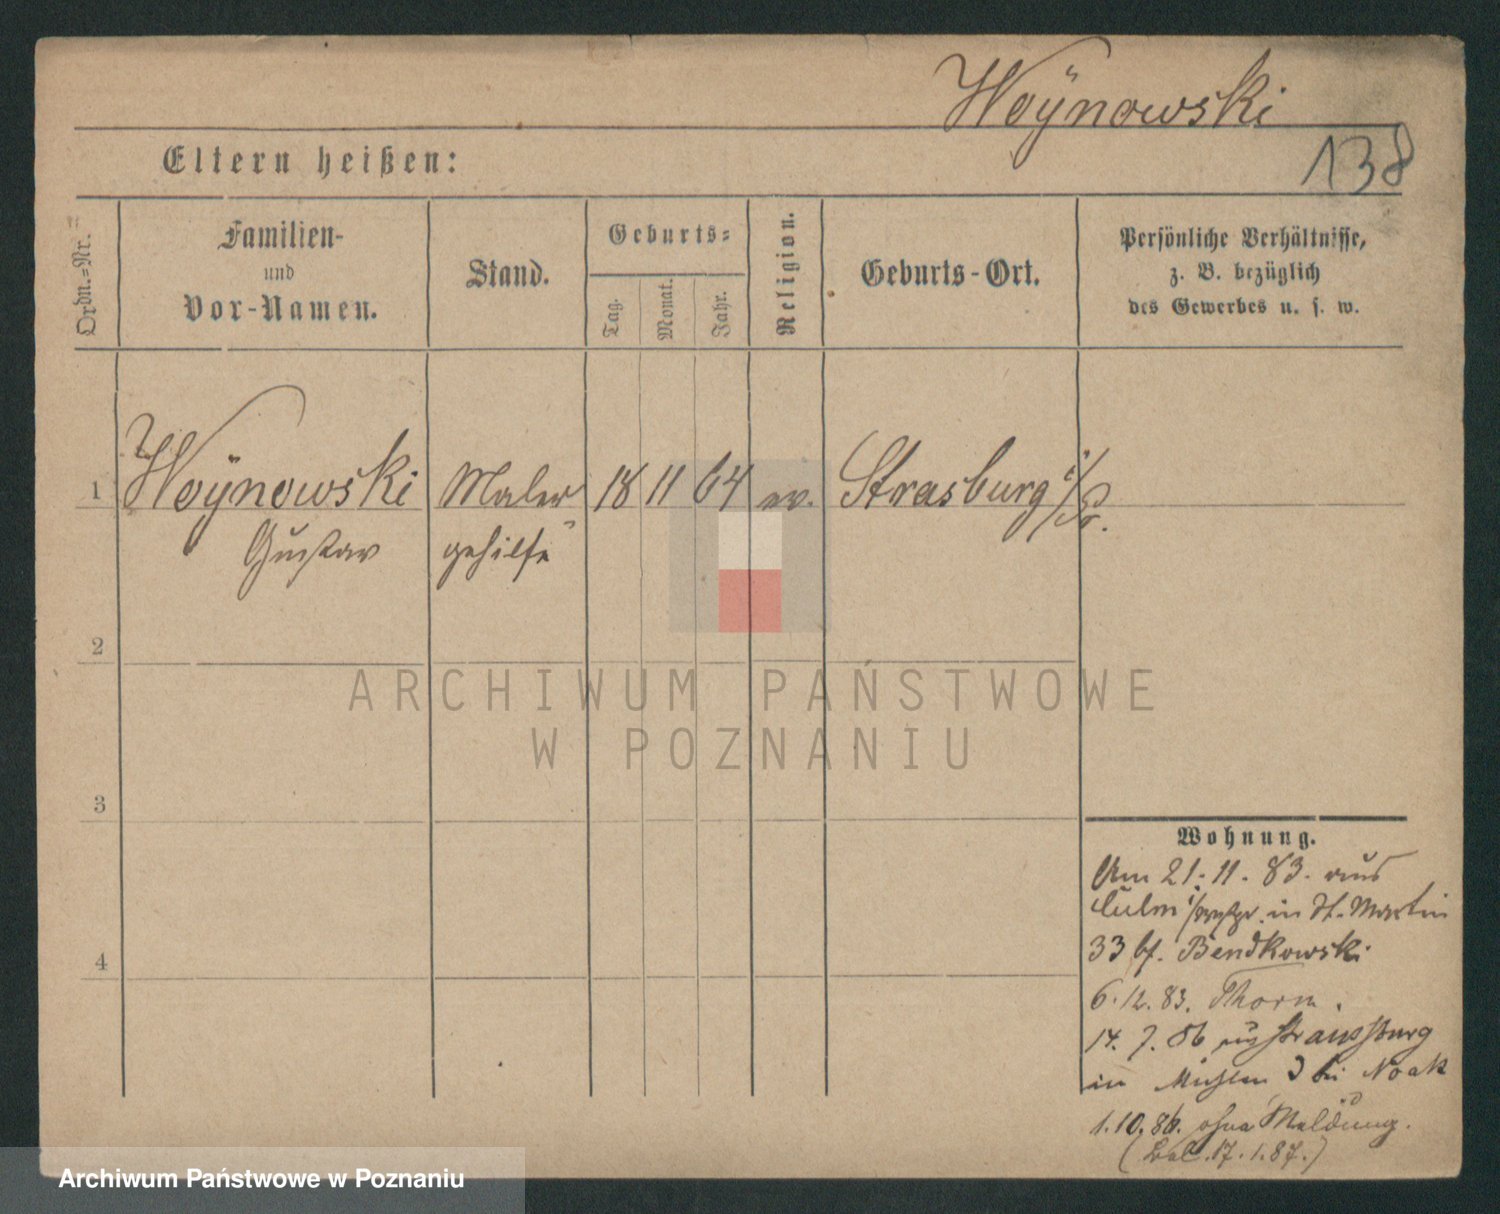 Woÿnowski
138
Eltern heißen:
Ordn.=Nr.
Familien-
und
Vor-Namen.
Stand.
Geburts=
Tag.
Monat.
Jahr.
Religion.
Geburts-Ort.
Persönliche Verhältnisse,
z. B. bezüglich
des Gewerbes u. s. w.
1 Woÿnowski Maler 18 11 64 ev. Strasburg i/Pr.
Gustav gehilfe
2
3
4
ARCHIWUM PAŃSTWOWE
W POZNANIU
Wohnung.
Am 21.11.83. aus
Culm in St. Martin
33 bf. Bendkowski
6.12.83. Thorn.
14.7.86 aus Straussburg
in Mühlen 3 bei Noak
1.10.86. ohne Meldung.
17.1.87.)
Archiwum Państwowe w Poznaniu